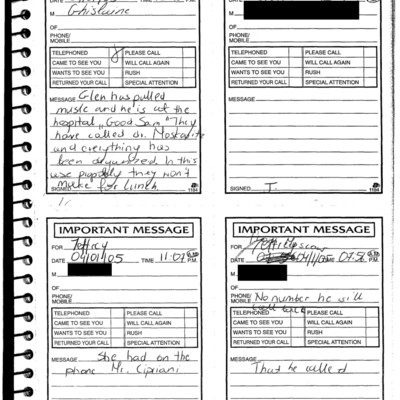 DATE TIME
M Ghislaine
OF
PHONE/
MOBILE
TELEPHONED PLEASE CALL
CAME TO SEE YOU WILL CALL AGAIN
WANTS TO SEE YOU RUSH
RETURNED YOUR CALL SPECIAL ATTENTION
MESSAGE Glen has pulled
muscle and he is at the
hospital "Good Sam" They
have called dr. Moskowitz
and everything has
been organized. In this
case they won't
make for lunch.
SIGNED 1184
DATE P.M.
M
OF
PHONE/
MOBILE
TELEPHONED PLEASE CALL
CAME TO SEE YOU WILL CALL AGAIN
WANTS TO SEE YOU RUSH
RETURNED YOUR CALL SPECIAL ATTENTION
MESSAGE
SIGNED 1184
IMPORTANT MESSAGE
FOR Jeffrey
DATE 04/01/05 TIME 11:07 P.M.
M
OF
PHONE/
MOBILE
TELEPHONED PLEASE CALL
CAME TO SEE YOU WILL CALL AGAIN
WANTS TO SEE YOU RUSH
RETURNED YOUR CALL SPECIAL ATTENTION
MESSAGE She had on the
phone Mr. Cipriani
IMPORTANT MESSAGE
FOR
DATE P.M.
M
OF
PHONE/
MOBILE No number he will
call back
TELEPHONED PLEASE CALL
CAME TO SEE YOU WILL CALL AGAIN
WANTS TO SEE YOU RUSH
RETURNED YOUR CALL SPECIAL ATTENTION
MESSAGE
That he called